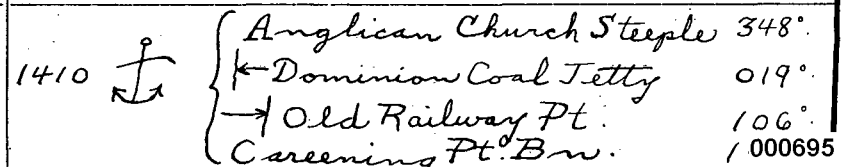 Anglican Church Steeple 348°.
1410 ⚓ |← Dominion Coal Jetty 019°.
→| Old Railway Pt. 106°.
Careening Pt. Bn. 1
000695